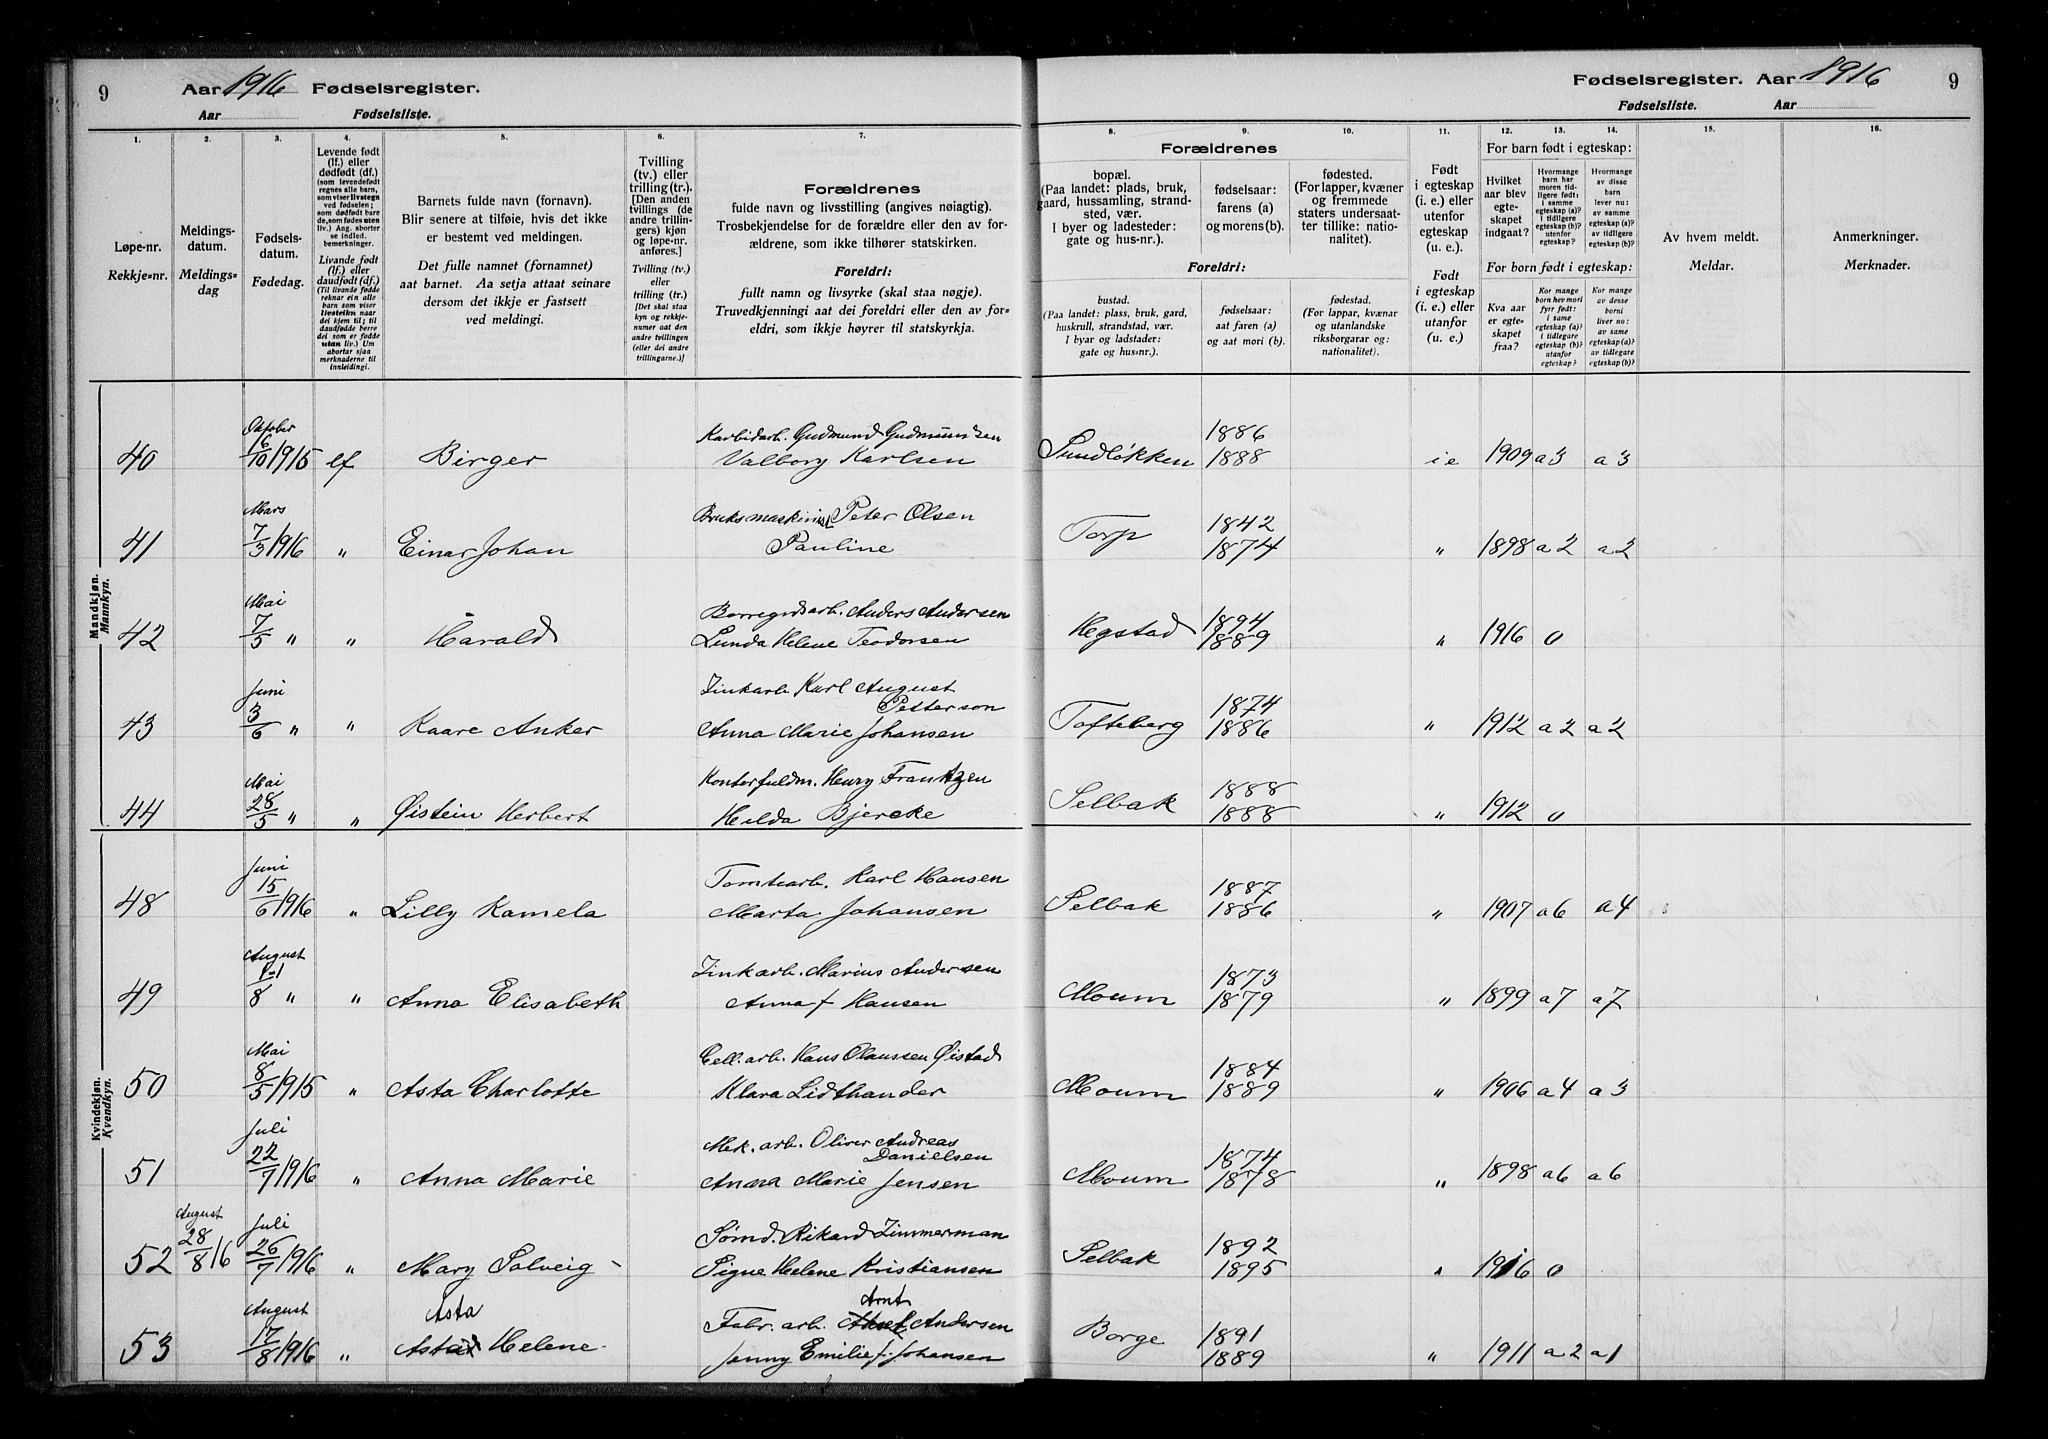 9 Aar 1916 Fødselsregister.
Aar Fødselsliste.
1. 2. 3. 4. 5. 6. 7.
Løpe-nr.
Rekkje-nr.
Meldings-
datum.
Meldings-
dag
Fødsels-
datum.
Fødedag.
Levende født
(lf.) eller
dødfødt (df.)
(som levendefødt
regnes alle barn,
som viser livstegn
ved fødselen;
som dødfødt bare
de, som fødes uten
liv.) Ang. aborter
se indled.
bemerkninger.
Livande født
(lf.) eller
daudfødt (df.)
(Til livande fødde
reknar ein alle
barn som viser
livsteikn naar
dei kjem til; til
daudfødde berre
dei som er fødde
utan liv.) Um
abortar sjaa
merknaderne til
innleidingi.
Barnets fulde navn (fornavn).
Blir senere at tilføie, hvis det ikke
er bestemt ved meldingen.
Det fulle namnet (fornamnet)
aat barnet. Aa setja attaat seinare
dersom det ikkje er fastsett
ved meldingi.
Tvilling
(tv.) eller
trilling (tr.).
[Den anden
tvillings (de
andre trillin-
gers) kjøn
og løpe-nr.
anføres.]
Tvilling (tv.)
eller
trilling (tr.)
[Det skal staa
kyn og rekkje-
numer aat den
andre tvillingen
(eller dei andre
trillingarne.)]
Forældrenes
fulde navn og livsstilling (angives nøiagtig).
Trosbekjendelse for de forældre eller den av for-
ældrene, som ikke tilhører statskirken.
Foreldri:
fullt namn og livsyrke (skal staa nøgje).
Truvedkjenningi aat dei foreldri eller den av for-
eldri, som ikkje høyrer til statskyrkja.
Mandkjøn.
Mannkyn.
Oktober
40 6/10 1915 lf Birger Karbidarb. Gudmund Gudmundsen
Valborg Karlsen
Mars
41 7/3 1916 " Einar Johan Bruksmaskinist Peter Olsen
Pauline
Mai
42 7/5 " " Harald Borregdsarb. Anders Andersen
Lunda Helene Teodorsen
Juni
43 3/6 " " Kaare Anker Zinkarb. Karl August
Petterson
Anna Marie Johansen
Mai
44 28/5 " " Øistein Herbert Kontorfuldm. Henry Frantzen
Hilda Bjercke
Kvindekjøn.
Kvendkyn.
Juni
48 15/6 1916 " Lilly Kamela Tomtearb. Karl Hansen
Marta Johansen
August
49 8 " " Anna Elisabeth Zinkarb. Marius Andersen
Anna f Hansen
Mai
50 8/5 1915 " Asta Charlotte Cell. arb. Hans Olaussen Øistad
Klara Lidthander
Juli
51 22/7 1916 " Anna Marie Mek. arb. Oliver Andreas
Danielsen
Anna Marie Jensen
August Juli
52 28/8 16 26/7 1916 " Mary Solveig - Sømd. Rikard Zimmerman
Signe Helene Kristiansen
August Asta Arnt
53 17/8 1916 " Helene Fabr. arb. Andersen
Jenny Emilie f. Johansen
Fødselsregister. Aar 1916 9
Fødselsliste. Aar
8. 9. 10. 11. 12. 13. 14. 15. 16.
Forældrenes
bopæl.
(Paa landet: plads, bruk,
gaard, hussamling, strand-
sted, vær.
I byer og ladesteder:
gate og hus-nr.).
fødselsaar:
farens (a)
og morens (b).
fødested.
(For lapper, kvæner
og fremmede
staters undersaat-
ter tillike: natio-
nalitet).
Foreldri:
bustad.
(Paa landet: plass, bruk, gard,
huskrull, strandstad, vær.
I byar og ladstader:
gate og hus-nr.).
fødselsaar:
aat faren (a)
og aat mori (b).
fødestad.
(For lappar, kvæner
og utanlandske
riksborgarar og:
nationalitet).
Født
i egteskap
(i. e.) eller
utenfor
egteskap
(u. e.).
Født
i egteskap
(i. e.) eller
utanfor
(u. e.).
For barn født i egteskap:
Hvilket
aar blev
egte-
skapet
indgaat?
Hvormange
barn har
moren tid-
ligere født:
i samme
egteskap (a)?
i tidligere
egteskap (b)?
utenfor
egteskap?
Hvormange
av disse
barn
lever nu:
av samme
egteskap (a)?
av tidligere
egteskap (b)?
For born født i egteskap:
Kva aar
er egte-
skapet
fraa?
Kor mange
born hev mori
fyrr født:
i same
egteskap (a)?
i tidlegare
egteskap (b)?
utanfor
egteskap?
Kor mange
av desse
borni
liver no:
av same
egteskap (a)?
av tidlegare
egteskap (b)?
Av hvem meldt.
Meldar.
Anmerkninger.
Merknader.
Sundløkken 1886
1888 i e 1909 a 3 a 3
Torp 1842
1874 " 1898 a 2 a 2
Hegstad 1894
1889 " 1916 0
Tofteberg 1874
1886 " 1912 a 2 a 2
Selbak 1888
1888 " 1912 0
Selbak 1887
1886 " 1907 a 6 a 4
Moum 1873
1879 " 1899 a 7 a 7
Moum 1884
1889 " 1906 a 4 a 3
Moum 1874
1878 " 1898 a 6 a 6
Selbak 1892
1895 " 1916 0
Borge 1891
1889 " 1911 a 2 a 1